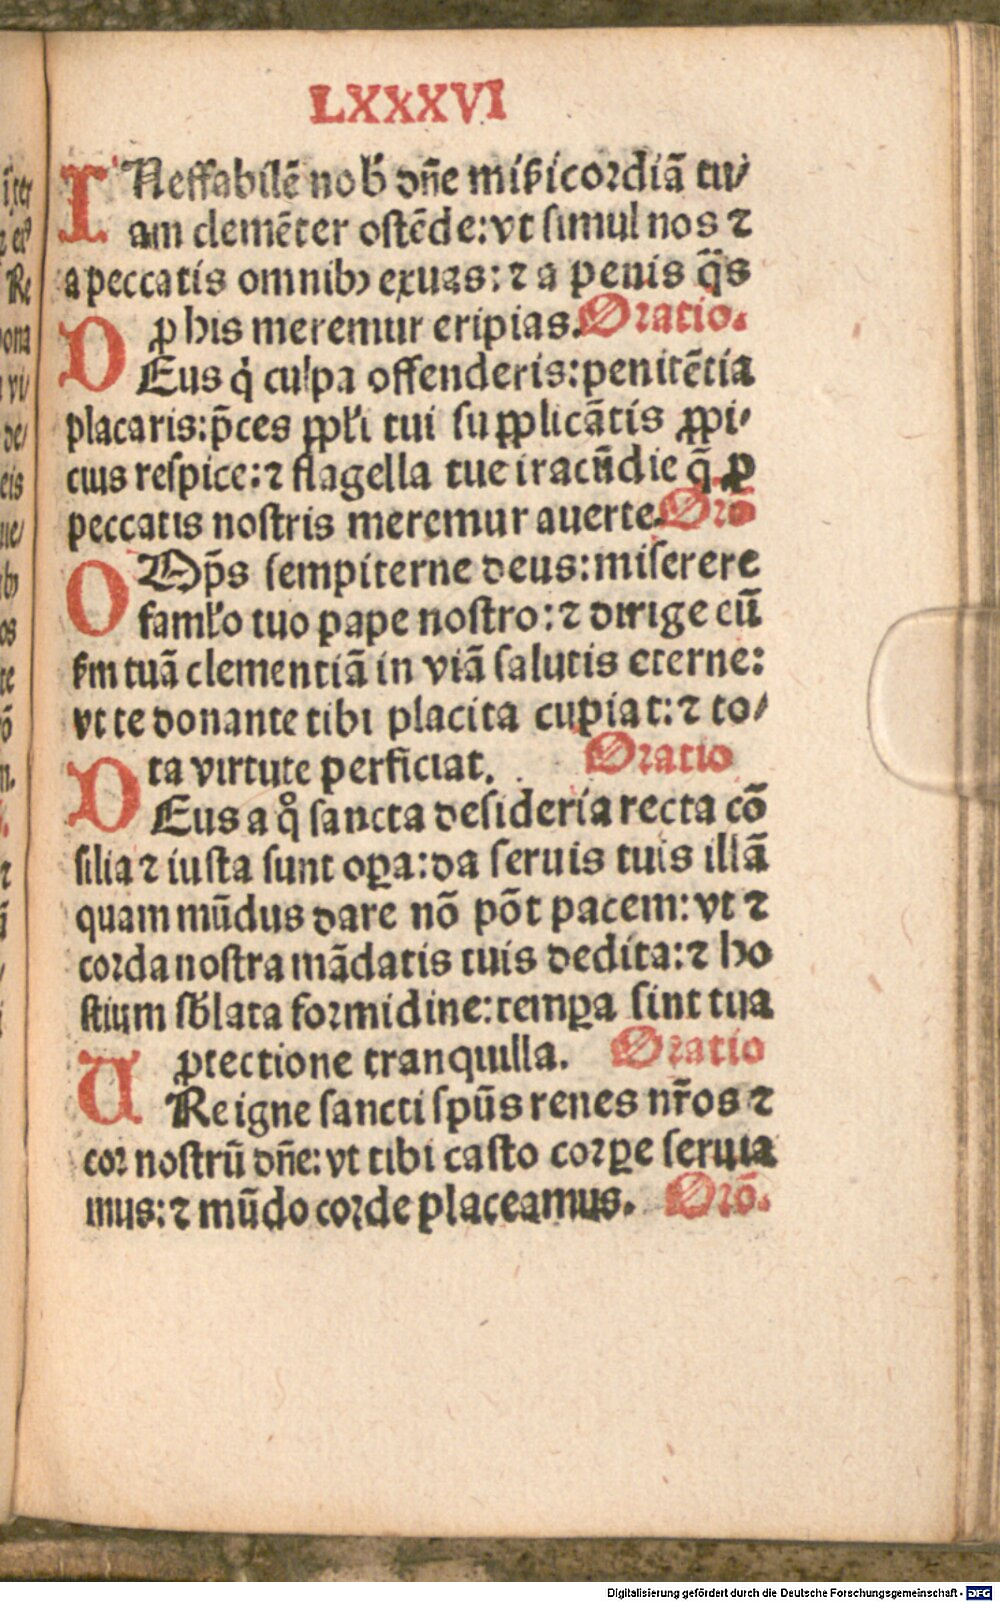 LXXXVI
INeffabilē nob̄ dn̄e mis̄icordiã tu/
am clemēter ostēde: vt simul nos ⁊
a peccatis omnibꝫ exuas: ⁊ a penis q̄s
ꝓ his meremur eripias. Oratio.
DEus q̇ culpa offenderis: penitētia
placaris: p̄ces ꝓpl̄i tui supplicātis ꝓpi/
cius respice: ⁊ flagella tue iracūdie q̄ ꝓ
peccatis nostris meremur auerte. Orō
OOp̄s sempiterne deus: miserere
famł̄o tuo pape nostro: ⁊ dirige eū
s̄m tuã clementiã in viã salutis eterne:
vt te donante tibi placita cupiat: ⁊ to/
ta virtute perficiat. Oratio
DEus a qͦ sancta desideria recta cō
silia ⁊ iusta sunt oꝑa: da seruis tuis illã
quam mūdus dare nō pōt pacem: vt ⁊
corda nostra mãdatis tuis dedita: ⁊ ho
stium sb̄lata formidine: tempꝑa sint tua
ꝓtectione tranquilla. Oratio
URe igne sancti sp̄us renes nr̄os ⁊
cor nostrū dn̄e: vt tibi casto corꝑe seruia
mus: ⁊ mūdo corde placeamus. Orō.
Digitalisierung gefördert durch die Deutsche Forschungsgemeinschaft - DFG